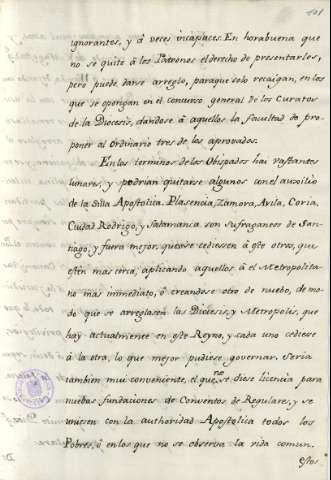 101
ignorantes, y à veces incapaces. En horabuena que
no se quite à los Patronos el derecho de presentarlos,
pero puede darse arreglo, paraque solo recaigan, en los
que se opongan en el concurso general de los Curatos
de la Diocesis, dandose à aquellos la facultad de pro-
poner al Ordinario tres de los aprovados.
En los terminos de los Obispados hai vastantes
lunares, y podrian quitarse algunos con el auxilio
de la Silla Apostolica. Plasencia, Zamora, Avila, Coria,
Ciudad Rodrigo, y Salamanca son sufraganeos de San-
tiago, y fuera mejor, que se cediessen à otro, que
estèn mas cerca, aplicando aquellos à el Metropolita-
no mas immediato, ò creandose otro de nuebo, de mo-
do que se arreglasen las Diocesis, y Metropolis, que
hay actualmente en este Reyno, y cada uno cediese
à la otra, lo que mejor pudiese governar. Seria
tambien mui conveniente, el que no se diese licencia para
nuebas fundaciones de Conventos de Regulares, y se
uniesen con la authoridad Apostolica todos los
Pobres, ò en los que no se observa la vida comun.
estos